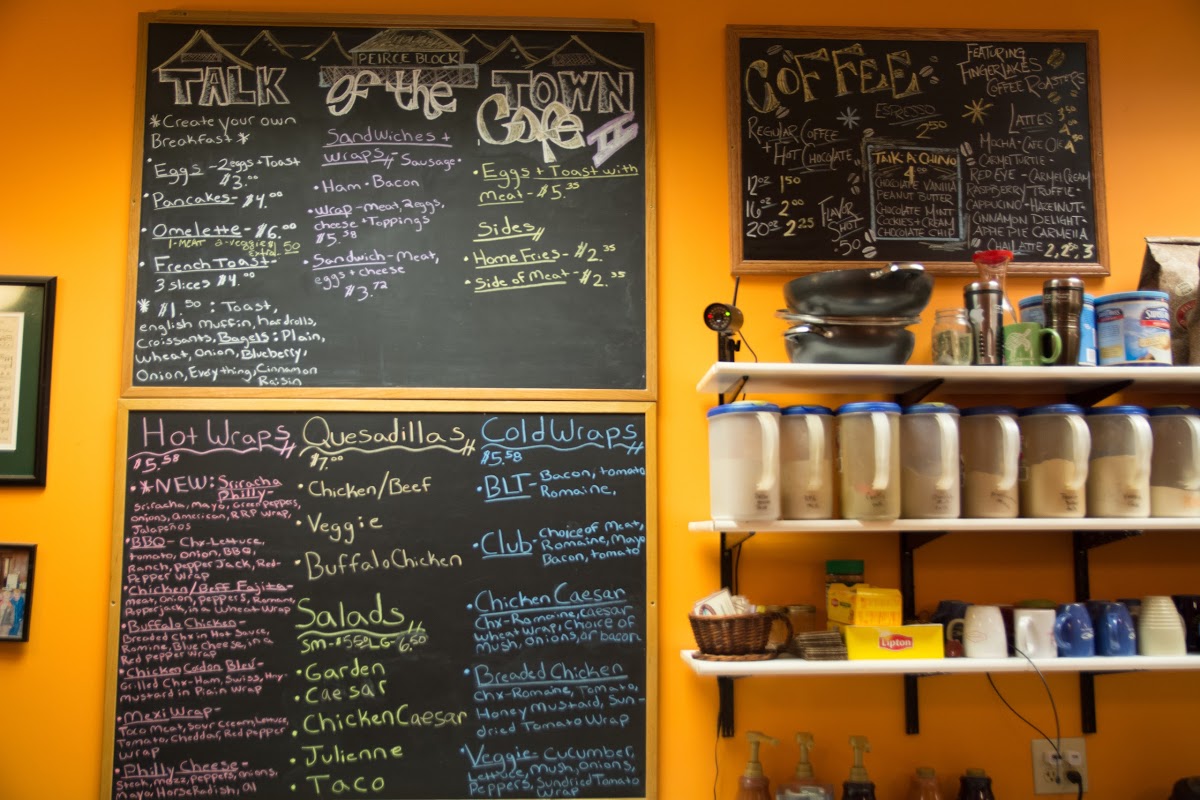 PEIRCE BLOCK
TALK of the TOWN
Cafe II
*Create your own
Breakfast *
• Eggs - 2eggs + Toast
$3.00
• Pancakes - $4.00
• Omelette - $6.00
1-MEAT 2-veggies
Extra .50
• French Toast -
3 slices $4.00
* $1.50 : Toast,
english muffin, hardrolls,
Croissants, Bagels: Plain,
Wheat, Onion, Blueberry,
Onion, Everything, Cinnamon
Raisin
Sandwiches +
Wraps Sausage
• Ham • Bacon
• Wrap - meat, 2eggs,
cheese + Toppings
$5.58
• Sandwich - Meat,
eggs + cheese
$3.72
• Eggs + Toast with
Meat - $5.35
Sides
• Home Fries - $2.35
• Side of Meat - $2.35
COFFEE
FEATURING
FINGERLAKES
COFFEE ROASTERS
ESPRESSO
2.50
REGULAR COFFEE
+ HOT CHOCOLATE
12oz 1.50
16oz 2.00
20oz 2.25
FLAVOR
SHOT
.50
TALK A CHINO
4.00
CHOCOLATE VANILLA
PEANUT BUTTER
CHOCOLATE MINT
COOKIES + CREAM
CHOCOLATE CHIP
LATTES 3.50
MOCHA - CAFE
CARMEL TURTLE -
RED EYE - CARMEL CREAM
RASPBERRY TRUFFLE -
CAPPUCINO - HAZELNUT -
CINNAMON DELIGHT -
APPLE PIE CARMELLA
CHAI LATTE 2, 2.5, 3
Hot Wraps
$5.58
• *NEW: Sriracha
Philly -
Sriracha, Mayo, Green peppers,
onions, american, RRP wrap,
Jalapeños
• BBQ - Chx-Lettuce,
tomato, onion, BBQ,
Ranch, pepper Jack, Red-
Pepper Wrap
• Chicken/Beff Fajita -
meat, onion, peppers, Romaine,
Pepperjack, in a Wheat Wrap
• Buffalo Chicken -
Breaded Chx in Hot Sauce,
Romine, Blue Cheese, in a
Red Pepper Wrap
• Chicken Cordon Bleu -
Grilled Chx-Ham, Swiss, Hny-
Mustard in Plain Wrap
• Mexi Wrap -
Taco Meat, Sour Cream, Lettuce,
Tomato, Cheddar, Red pepper
Wrap
• Philly Cheese -
Steak, Mozz, peppers, onions,
Mayo, HorseRadish,
Quesadillas
$7.00
• Chicken/Beef
• Veggie
• Buffalo Chicken
Salads
sm - $5.50 LG - 6.50
• Garden
• Caesar
• Chicken Caesar
• Julienne
• Taco
Cold Wraps
$5.58
• BLT - Bacon, tomato
Romaine,
• Club - Choice of Meat,
Romaine, Mayo
Bacon, tomato
• Chicken Caesar
Chx-Romaine, caesar
Wheat Wrap, Choice of
Mush, onions, or bacon
• Breaded Chicken
Chx-Romaine, Tomato,
Honey Mustard, Sun-
dried Tomato Wrap
• Veggie - Cucumber,
Lettuce, Mush, Onions,
Peppers, Sundried Tomato
Wrap
Lipton